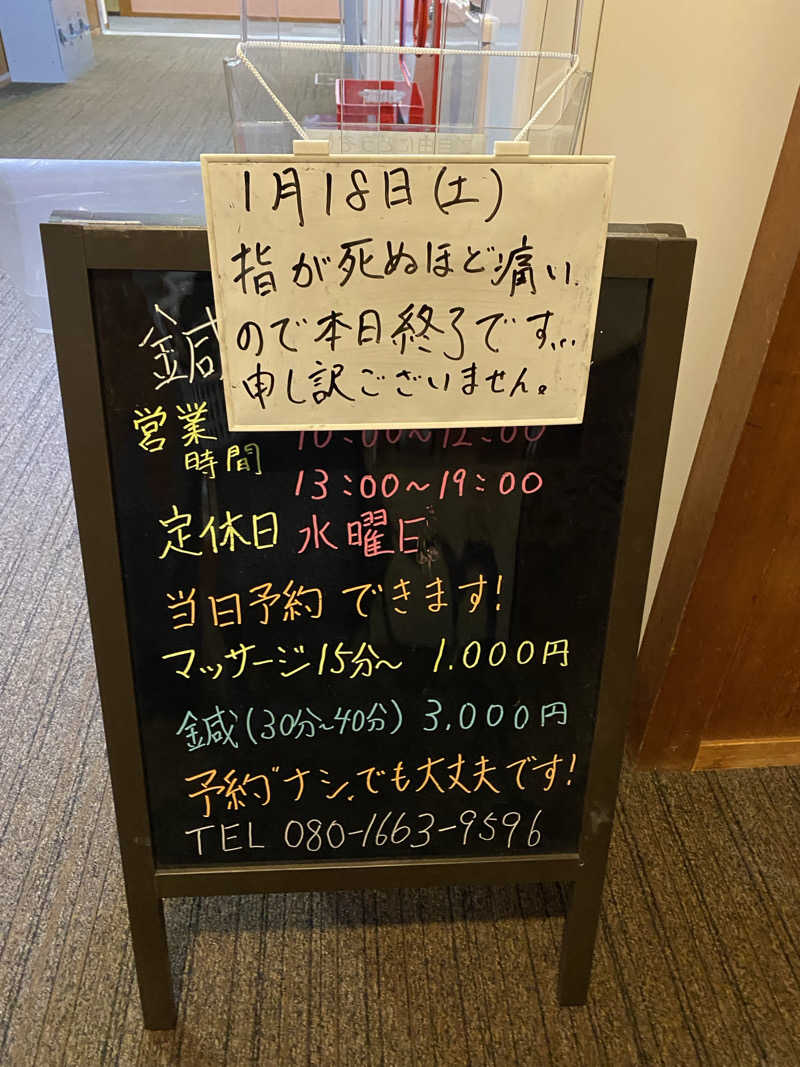 1月18日(土)
指が死ぬほど痛い
ので本日終了です...
申し訳ございません。
鍼
営業
時間
10:00〜12:00
13:00〜19:00
定休日 水曜日
当日予約できます!
マッサージ15分〜 1.000円
鍼(30分〜40分) 3.000円
予約"ナシ"でも大丈夫です!
TEL 080-1663-9596